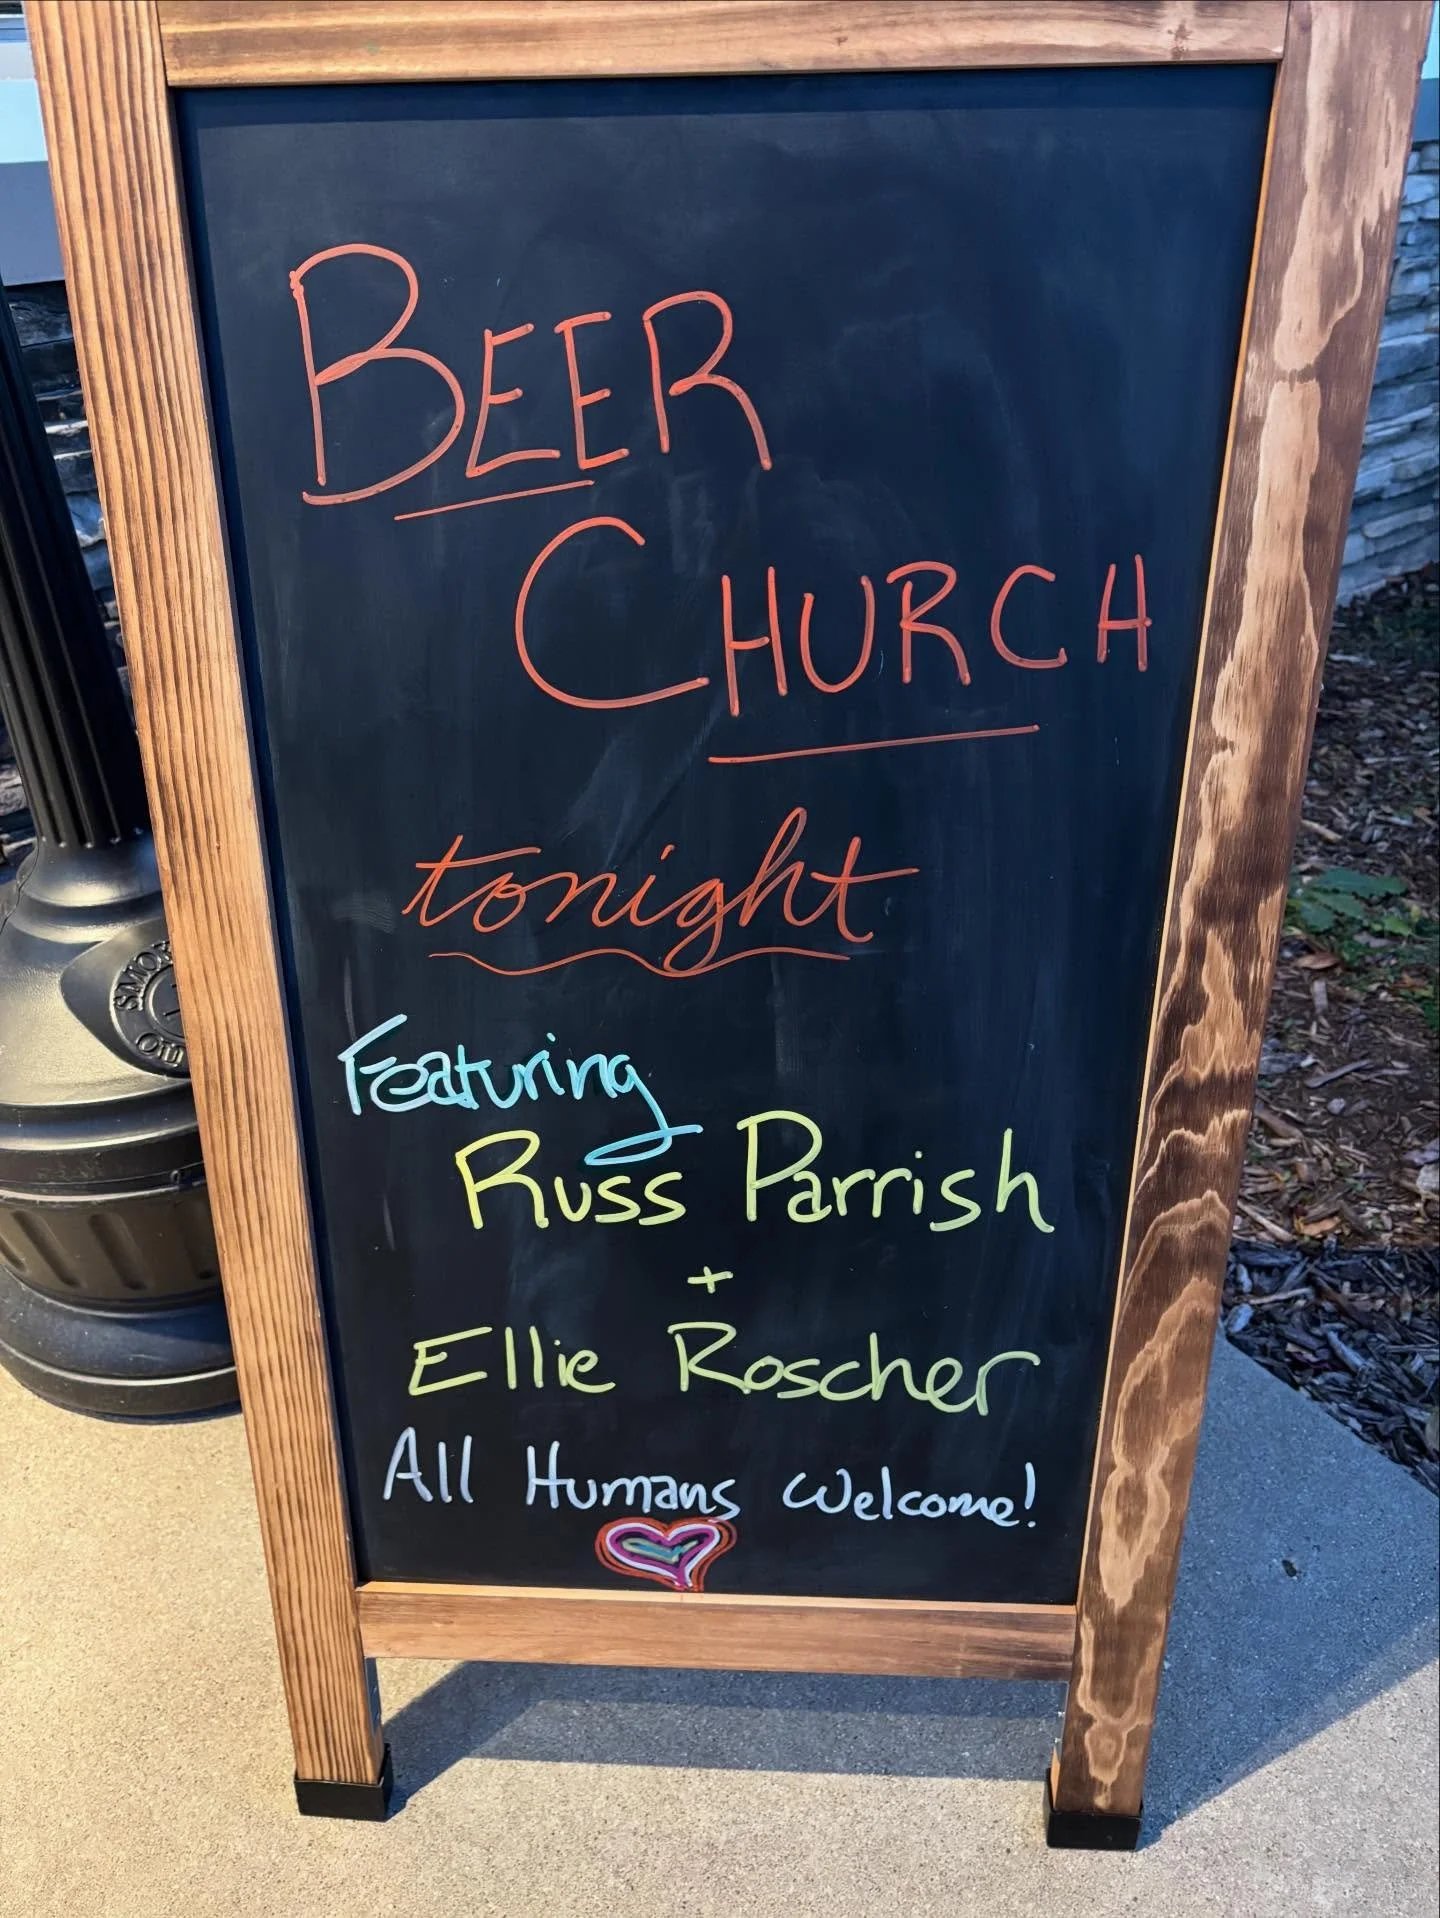 BEER
CHURCH
tonight
Featuring
Russ Parrish
+
Ellie Roscher
All Humans Welcome!